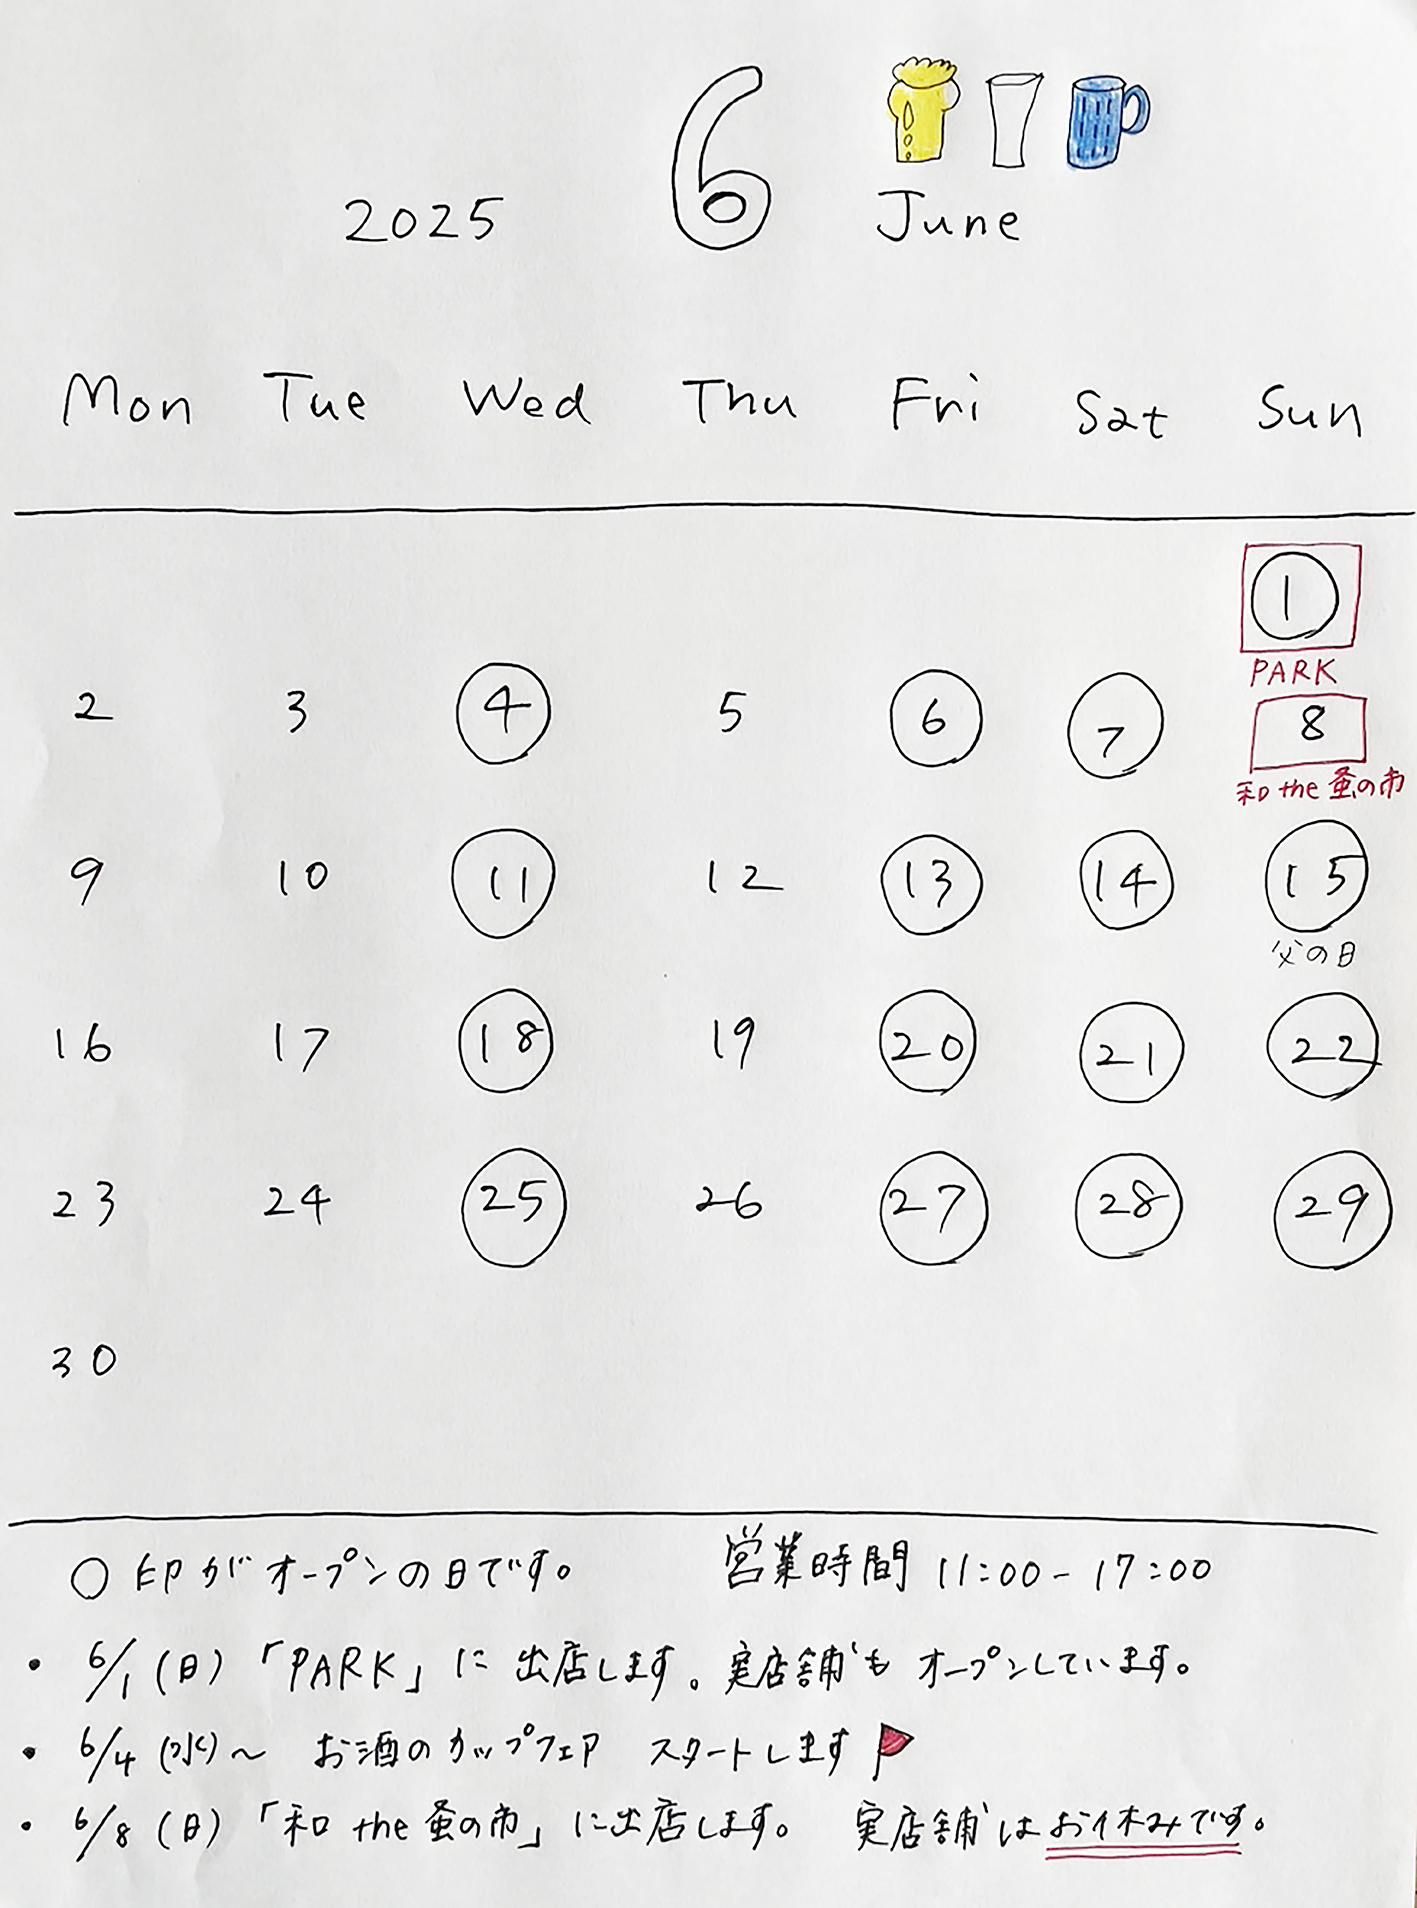 2025 6 June
Mon Tue Wed Thu Fri Sat Sun
1
PARK
2 3 4 5 6 7 8
和 the 蚤の市
9 10 11 12 13 14 15
父の日
16 17 18 19 20 21 22
23 24 25 26 27 28 29
30
○印がオープンの日です。 営業時間 11:00-17:00
・6/1(日)「PARK」に出店します。実店舗もオープンしています。
・6/4(水)〜 お酒のカップフェア スタートします
・6/8(日)「和 the 蚤の市」に出店します。 実店舗はお休みです。